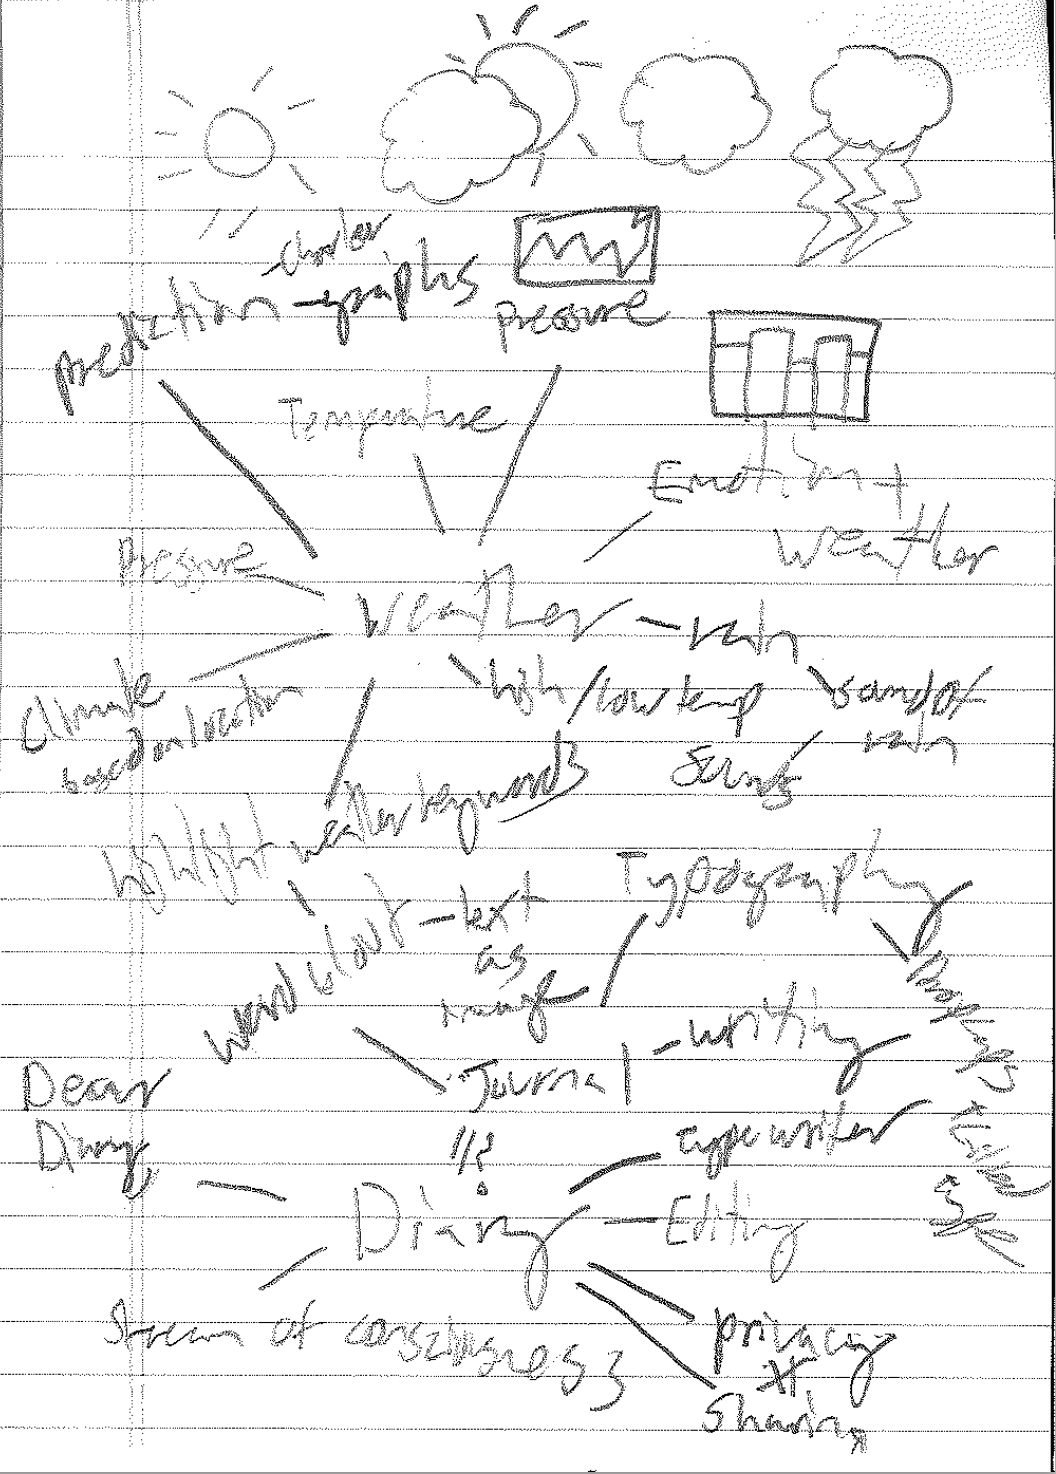 prediction - graphs
pressure
Temperature
Emotion +
Weather
Pressure
Weather - rain
high / low temp
sound of
rain
Climate
based on location
highlight weather keywords
Typography
word clout - text
as
image
- writing
Journal
Dear
Diary,
typewriter
Diary - Editing
Stream of
privacy
sharing